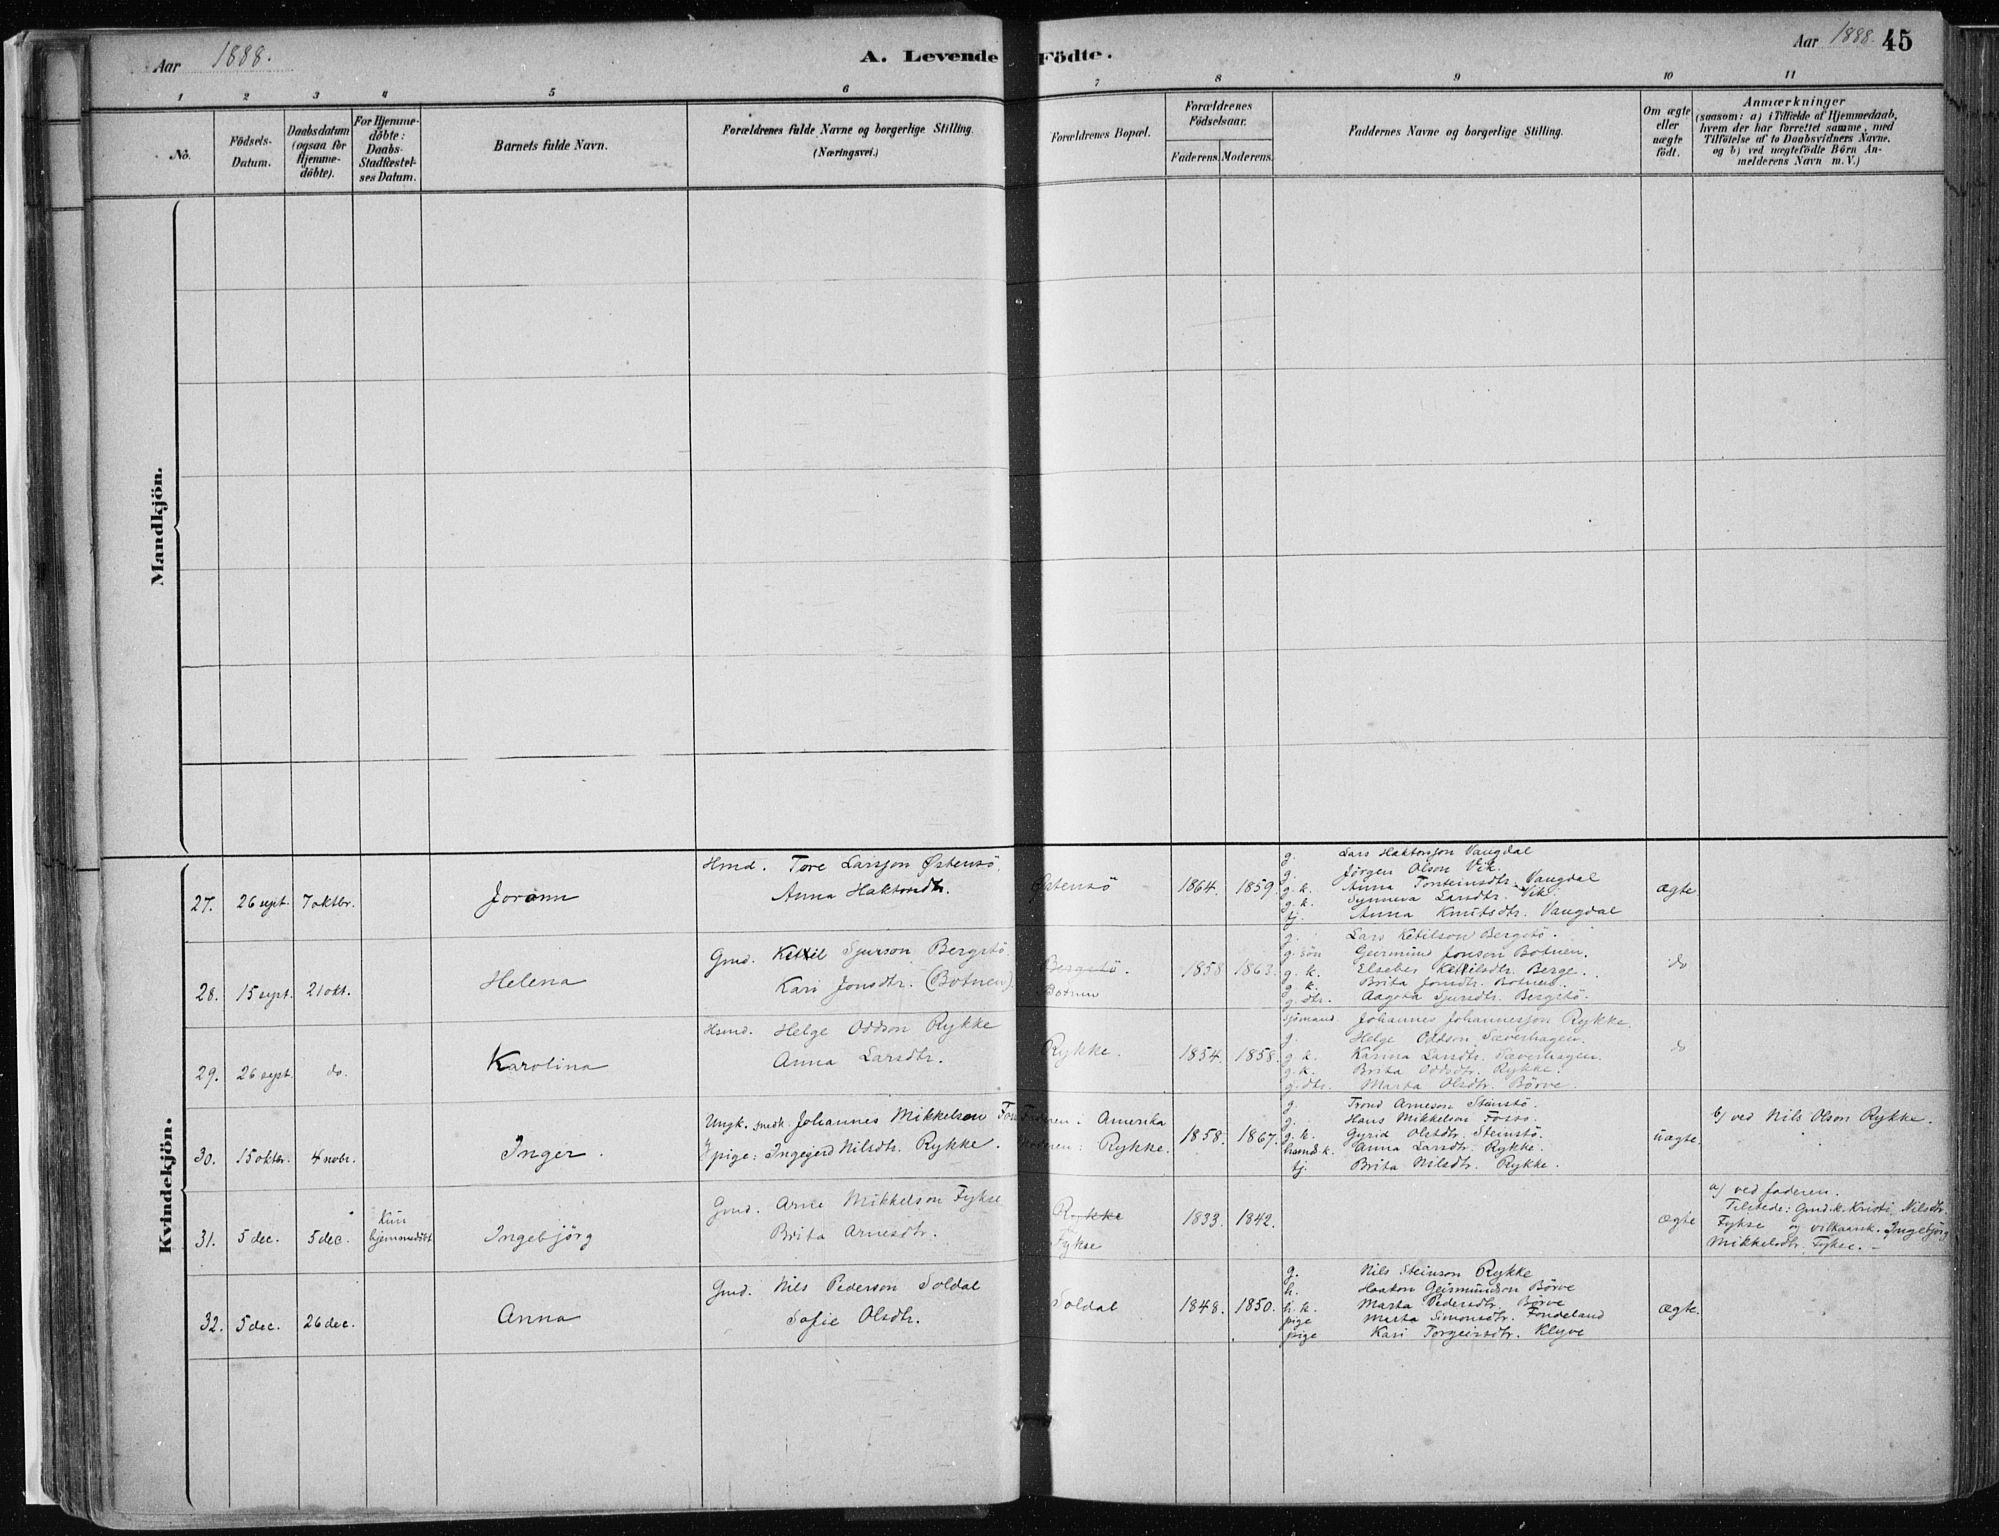 Aar 1888.
A. Levende Födte.
Aar 1888. 45
1 2 3 4 5 6 7 8 9 10 11
No.
Födsels-Datum.
Daabsdatum (ogsaa for Hjemme-döbte).
For Hjemme-döbte: Daabs-Stadfæstel-ses Datum.
Barnets fulde Navn.
Forældrenes fulde Navne og borgerlige Stilling.
(Næringsvei.)
Forældrenes Bopæl.
Forældrenes Födselsaar.
Faderens. Moderens.
Faddernes Navne og borgerlige Stilling.
Om ægte eller uægte födt.
Anmærkninger
(saasom: a) i Tilfælde af Hjemmedaab,
hvem der har forrettet samme, med
Tilföielse af to Daabsvidners Navne.
og b) ved uægtefödte Börn An-
melderens Navn m. V.)
Mandkjön.
Kvindekjön.
27. 26 sept. 7 oktbr. Jorann
Hmd. Tore Larsson Østensö,
Anna Haktorsdtr.
Østensö 1864. 1859.
g. Lars Haktorsson Vangdal
g. Jörgen Olson Vik.
g. k. Anna Torsteinsdtr. Vangdal
g. k. Synneva Larsdtr. Vik.
tj. Anna Knutsdtr. Vangdal
ægte
28. 15 sept. 21 okt. Helena
Gmd. Ketil Sjurson Bergstö
Kari Jonsdtr. (Botnen)
Bergstö.
Botnen
1858 1863.
g. Lars Ketilson Bergstö.
g. sön Geirmund Jonson Botnen.
g. k. Elsebes Ketilsdtr. Berge.
g. k. Brita Jonsdtr. Botnen.
g. dtr. Aagota Sjursdtr. Bergstö.
do
29. 26 sept. do. Karolina
Hsmd. Helge Oddson Rykke
Anna Larsdtr.
Rykke. 1854. 1858.
sjömand. Johannes Johannesson Rykke.
g. Helge Oddson Sæverhagen.
g. k. Karina Larsdtr. Sæverhagen.
g. k. Brita Oddsdtr. Rykke.
g. dtr. Marta Olsdtr. Börve
do
30. 15 oktbr. 4 nobr. Inger.
Ungk. smedk. Johannes Mikkelson
pige: Ingegerd Nilsdtr. Rykke.
Faderen. Amerika
Moderen: Rykke.
1858. 1867.
g. Trond Arneson Steinstö.
g. Hans Mikkelson Fosso.
g. k. Gyrid Olsdtr. Steinstö.
hsmds k. Anna Larsdtr. Rykke.
tj. Brita Nilsdtr. Rykke.
uægte.
b) ved Nils Olson Rykke.
31. 5 dec. 5 dec. Kun hjemmedöbt Ingebjörg
Gmd. Arne Mikkelson Fykse
Brita Arnesdtr.
Rykke
Fykse
1833. 1842.
ægte
a) ved faderen.
Tilstede: Gmd. k. Kristi Nilsdtr.
Fykse og vilkaarsk. Ingebjörg
Mikkelsdtr. Fykse. –
32. 5 dec. 26 dec. Anna
Gmd. Nils Pederson Soldal
Sofie Olsdtr.
Soldal 1848. 1850.
g. Nils Steinson Rykke
h. Haaton Geirmundson Börve
h. k. Marta Pedersdtr. Börve
pige Marta Simonsdtr. Fondeland
pige Kari Torgeirsdtr. Klyve
ægte.